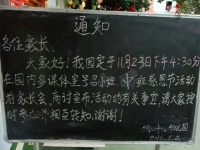 通知
各位家长:
大家好!我园定于11月23日下午4:30分
在园内多媒体室召开小班、中班感恩节活动
的家长会,商讨宣布活动的有关事宜,请大家按
时参加,相互转知。谢谢!
幼儿园